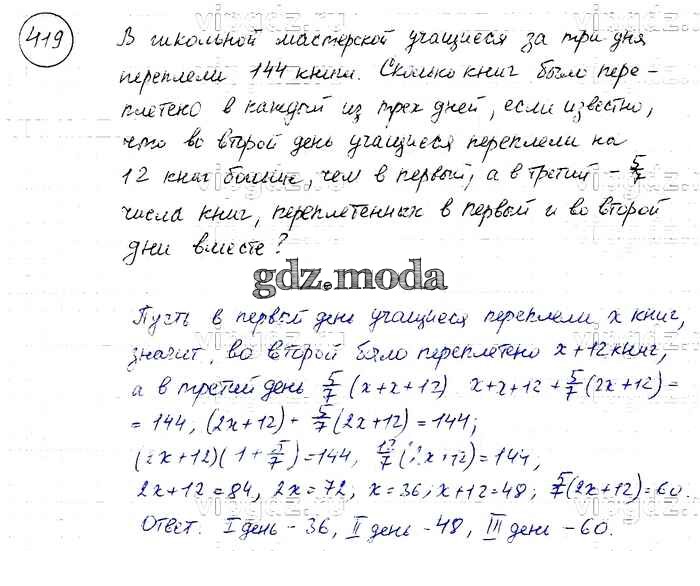 419
В школьной мастерской учащиеся за три дня
переплели 144 книги. Сколько книг было пере-
плетено в каждый из трех дней, если известно,
что во второй день учащиеся переплели на
12 книг больше, чем в первый, а в третий - 5/7
числа книг, переплетенных в первый и во второй
дни вместе?
gdz.moda
Пусть в первый день учащиеся переплели x книг,
значит, во второй было переплетено x+12 книг,
а в третий день 5/7 (x+x+12) x+x+12+5/7(2x+12)=
=144, (2x+12)+ 5/7(2x+12)=144;
(2x+12)(1+5/7)=144, 12/7(2x+12)=144;
2x+12=84, 2x=72; x=36; x+12=48; 5/7(2x+12)=60.
Ответ. I день - 36, II день - 48, III день - 60.